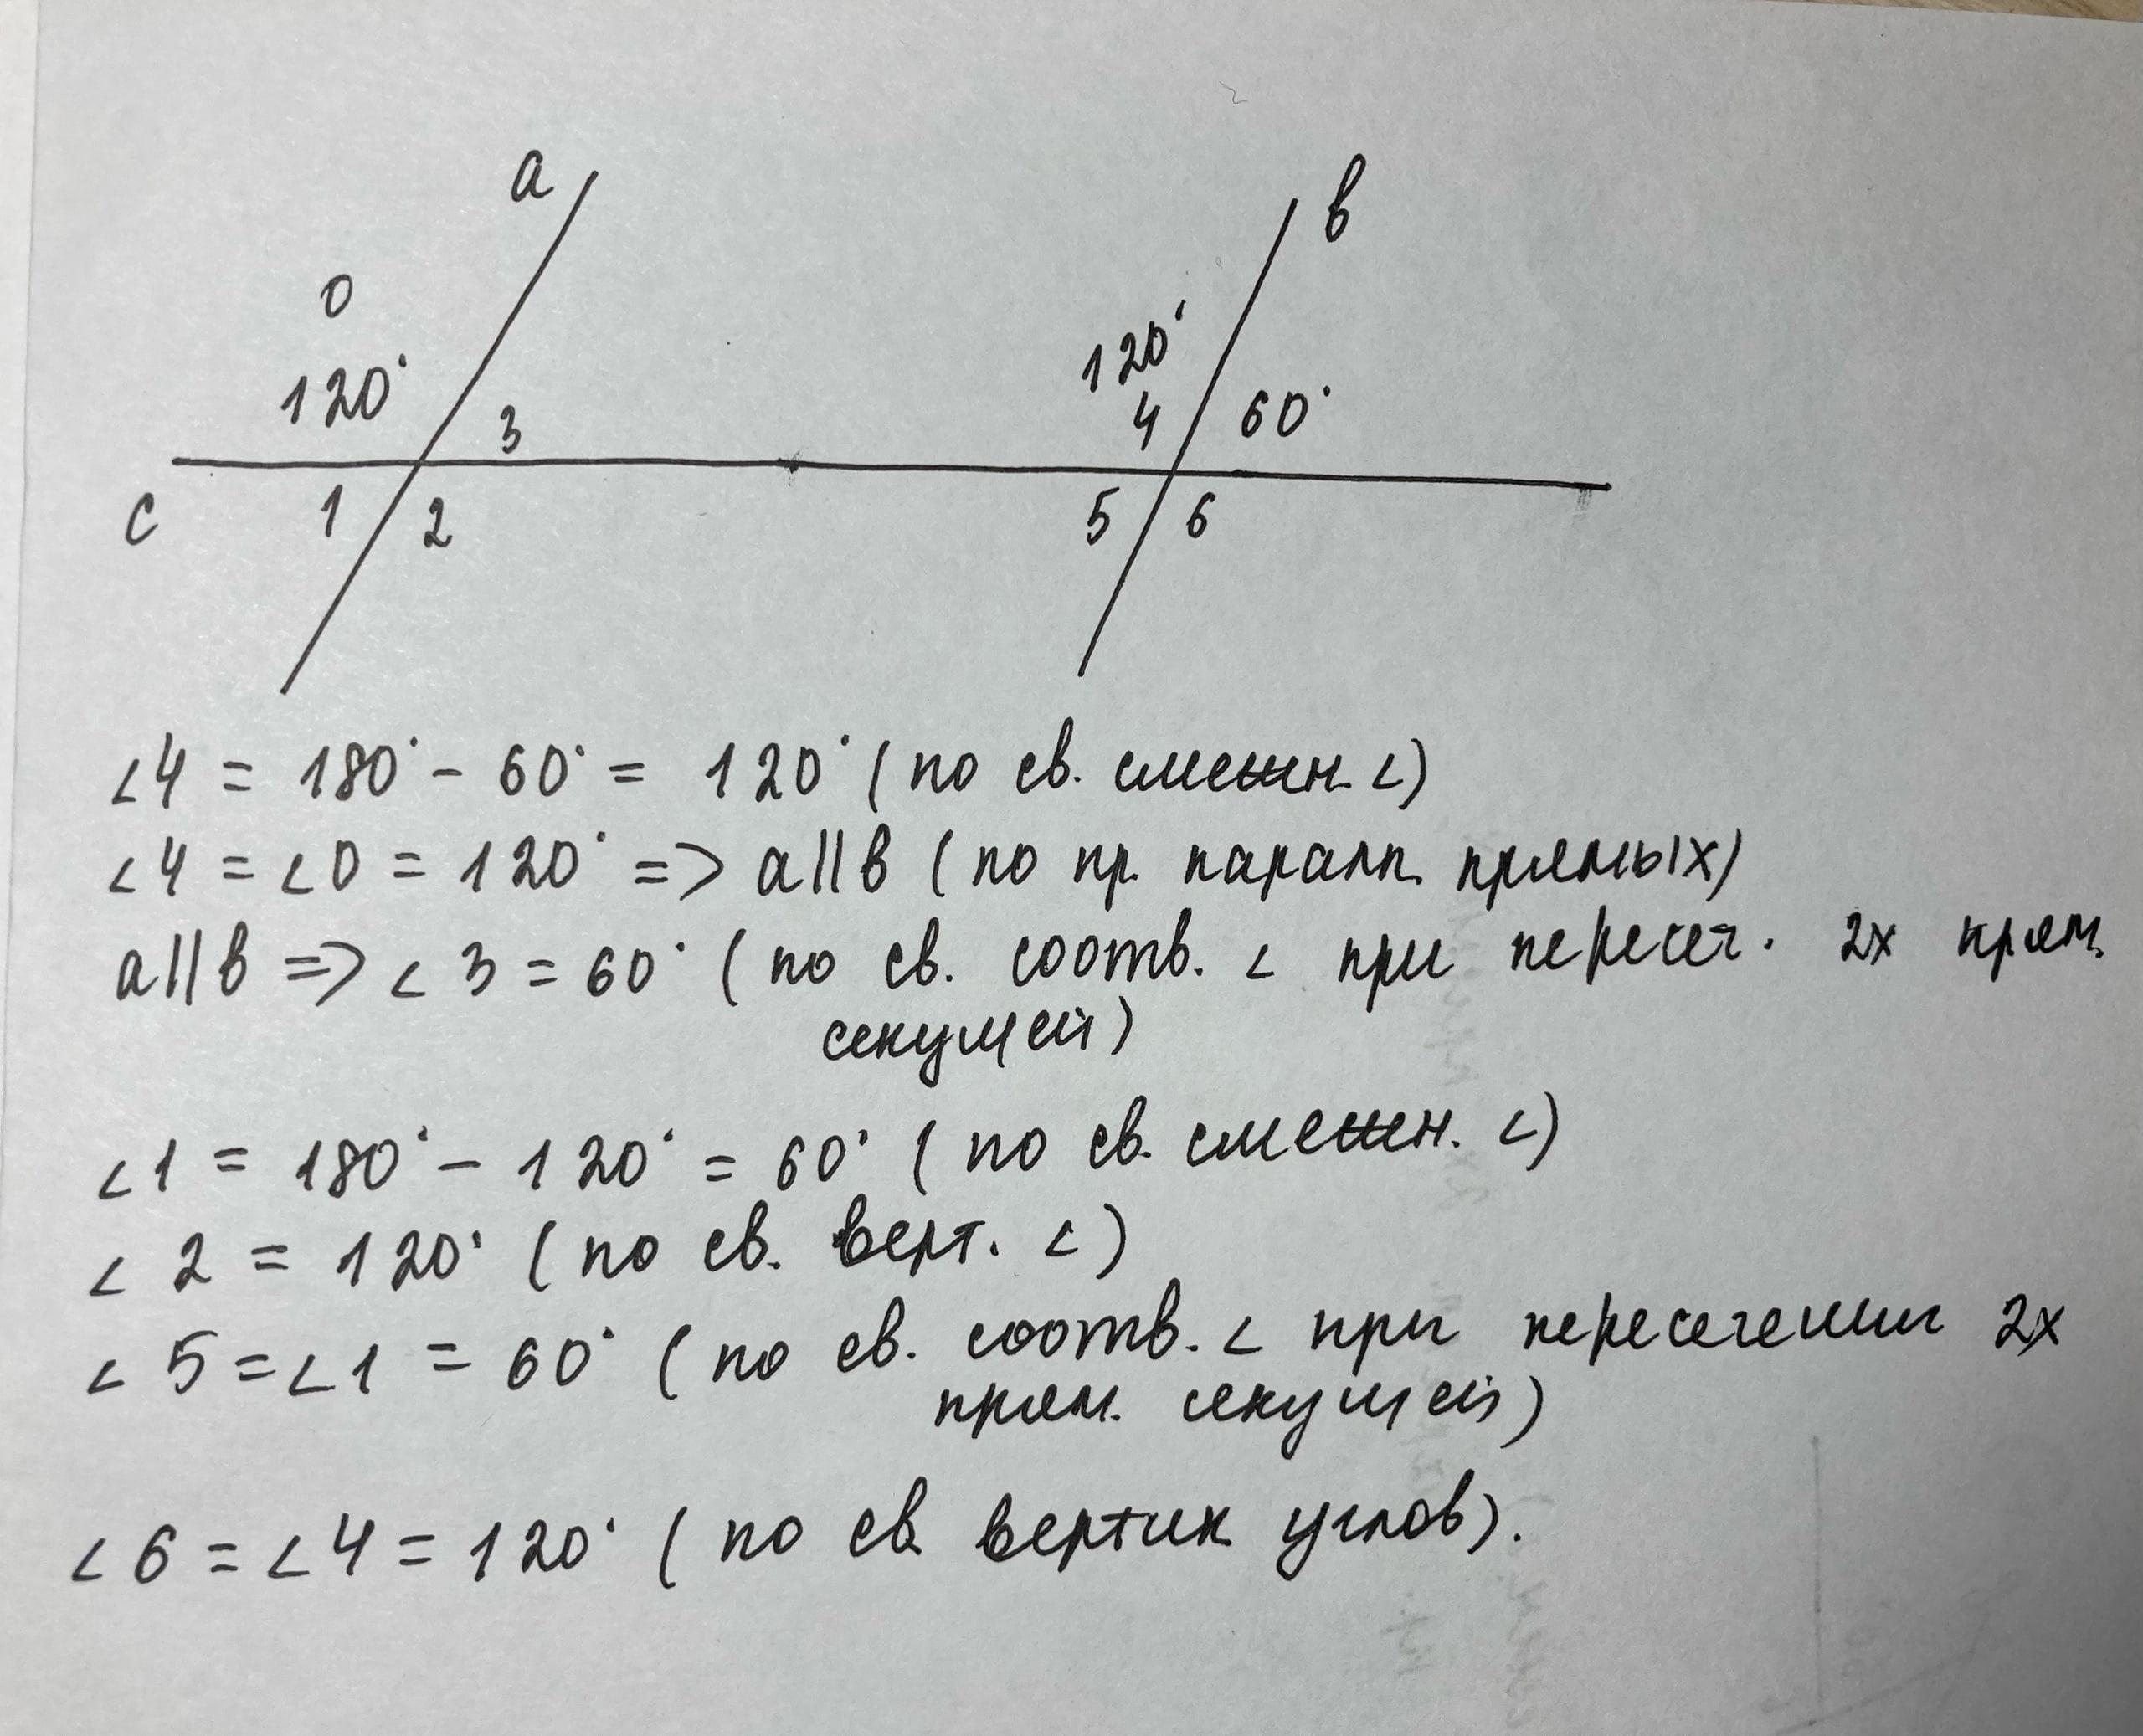 a
в
0
120°
120°
3
4
60°
c
1
2
5
6
∠4 = 180° - 60° = 120° (по св. смежн. ∠)
∠4 = ∠0 = 120° => a||в (по пр. паралл. прямых)
a||в => ∠3 = 60° (по св. соотв. ∠ при пересеч. 2х прям.
секущей)
∠1 = 180° - 120° = 60° (по св. смежн. ∠)
∠2 = 120° (по св. верт. ∠)
∠5 = ∠1 = 60° (по св. соотв. ∠ при пересечении 2х
прям. секущей)
∠6 = ∠4 = 120° (по св. вертик углов).